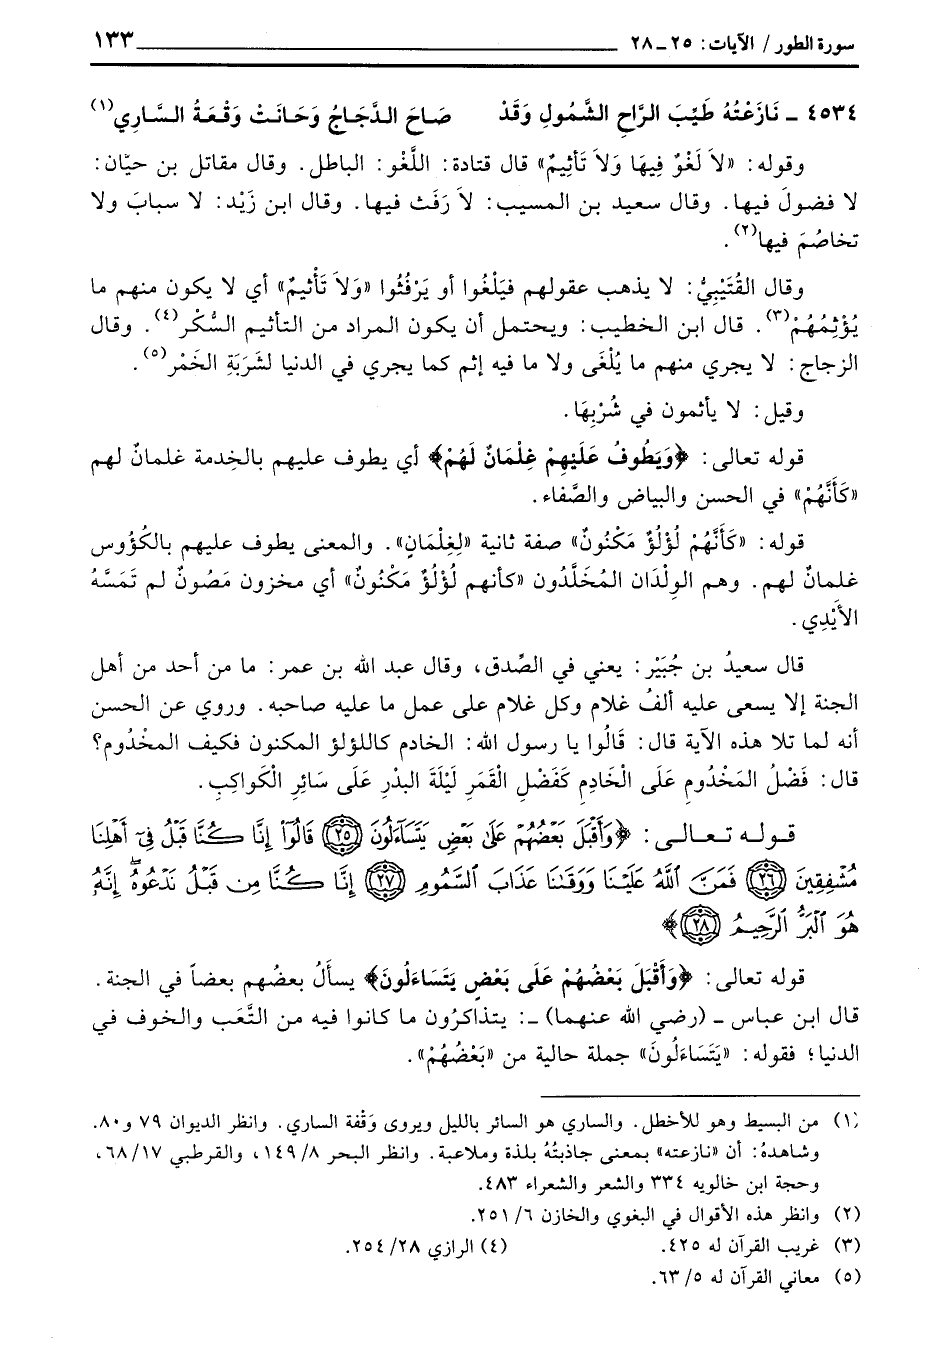 سورة الطور / الآيات: ٢٥ ـ ٢٨ ١٣٣
٤٥٣٤ ـ نَازَعْتُهُ طَيِّبَ الرَّاحِ الشَّمُولِ وَقَدْ صَاحَ الدَّجَاجُ وَحَانَتْ وَقْعَةُ السَّارِي(١)
وقوله: «لاَ لَغْوٌ فِيهَا وَلاَ تَأثِيمٌ» قال قتادة: اللَّغْو: الباطل. وقال مقاتل بن حيّان:
لا فضولَ فيها. وقال سعيد بن المسيب: لاَ رَفَث فيها. وقال ابن زَيْد: لا سبابَ ولا
تخاصُمَ فيها(٢).
وقال القُتَيْبِيُّ: لا يذهب عقولهم فيَلْغُوا أو يَرْفُثُوا «وَلاَ تَأْثيمٌ» أي لا يكون منهم ما
يُؤْثِمُهُمْ(٣). قال ابن الخطيب: ويحتمل أن يكون المراد من التأثيم السُّكْر(٤). وقال
الزجاج: لا يجري منهم ما يُلْغَى ولا ما فيه إثم كما يجري في الدنيا لشَرَبَةِ الخَمْر(٥).
وقيل: لا يأثمون في شُرْبِهَا.
قوله تعالى: ﴿وَيَطُوفُ عَلَيْهِمْ غِلْمَانٌ لَهُمْ﴾ أي يطوف عليهم بالخِدمة غلمانٌ لهم
«كَأَنَّهُمْ» في الحسن والبياض والصَّفاء.
قوله: «كَأَنَّهُمْ لُؤْلُؤٌ مَكْنُونٌ» صفة ثانية «لِغِلْمَانٍ». والمعنى يطوف عليهم بالكُؤُوس
غلمانٌ لهم. وهم الوِلْدَان المُخَلَّدُون «كأنهم لُؤْلُؤٌ مَكْنُونٌ» أي مخزون مَصُونٌ لم تَمَسَّهُ
الأَيْدِي.
قال سعيدُ بن جُبَيْر: يعني في الصِّدق، وقال عبد الله بن عمر: ما من أحد من أهل
الجنة إلا يسعى عليه ألفُ غلام وكل غلام على عمل ما عليه صاحبه. وروي عن الحسن
أنه لما تلا هذه الآية قال: قَالُوا يا رسول الله: الخادم كاللؤلؤ المكنون فكيف المخْدُوم؟
قال: فَضْلُ المَخْدُومِ عَلَى الْخَادِمِ كَفَضْلِ الْقَمَرِ لَيْلَةَ البدْرِ عَلَى سَائِرِ الْكَواكِبِ.
قوله تعالى: ﴿وَأَقْبَلَ بَعْضُهُمْ عَلَىٰ بَعْضٍ يَتَسَآءَلُونَ ٢٥ قَالُوٓا۟ إِنَّا كُنَّا قَبْلُ فِىٓ أَهْلِنَا
مُشْفِقِينَ ٢٦ فَمَنَّ ٱللَّهُ عَلَيْنَا وَوَقَىٰنَا عَذَابَ ٱلسَّمُومِ ٢٧ إِنَّا كُنَّا مِن قَبْلُ نَدْعُوهُ ۖ إِنَّهُۥ
هُوَ ٱلْبَرُّ ٱلرَّحِيمُ ٢٨﴾
قوله تعالى: ﴿وَأَقْبَلَ بَعْضُهُمْ عَلَى بَعْضٍ يَتَسَاءَلُونَ﴾ يسأَلُ بعضُهم بعضاً في الجنة.
قال ابن عباس ـ (رضي الله عنهما) ـ: يتذاكرُون ما كانوا فيه من التَّعَب والخوف في
الدنيا؛ فقوله: «يَتَسَاءَلُونَ» جملة حالية من «بَعْضُهُمْ».
(١) من البسيط وهو للأخطل. والساري هو السائر بالليل ويروى وَقْفة الساري. وانظر الديوان ٧٩ و٨٠.
وشاهدهُ: أن «نازعته» بمعنى جاذبتُهُ بلذة وملاعبة. وانظر البحر ٨/ ١٤٩، والقرطبي ١٧/ ٦٨،
وحجة ابن خالويه ٣٣٤ والشعر والشعراء ٤٨٣.
(٢) وانظر هذه الأقوال في البغوي والخازن ٦/ ٢٥١.
(٣) غريب القرآن له ٤٢٥. (٤) الرازي ٢٨/ ٢٥٤.
(٥) معاني القرآن له ٥/ ٦٣.